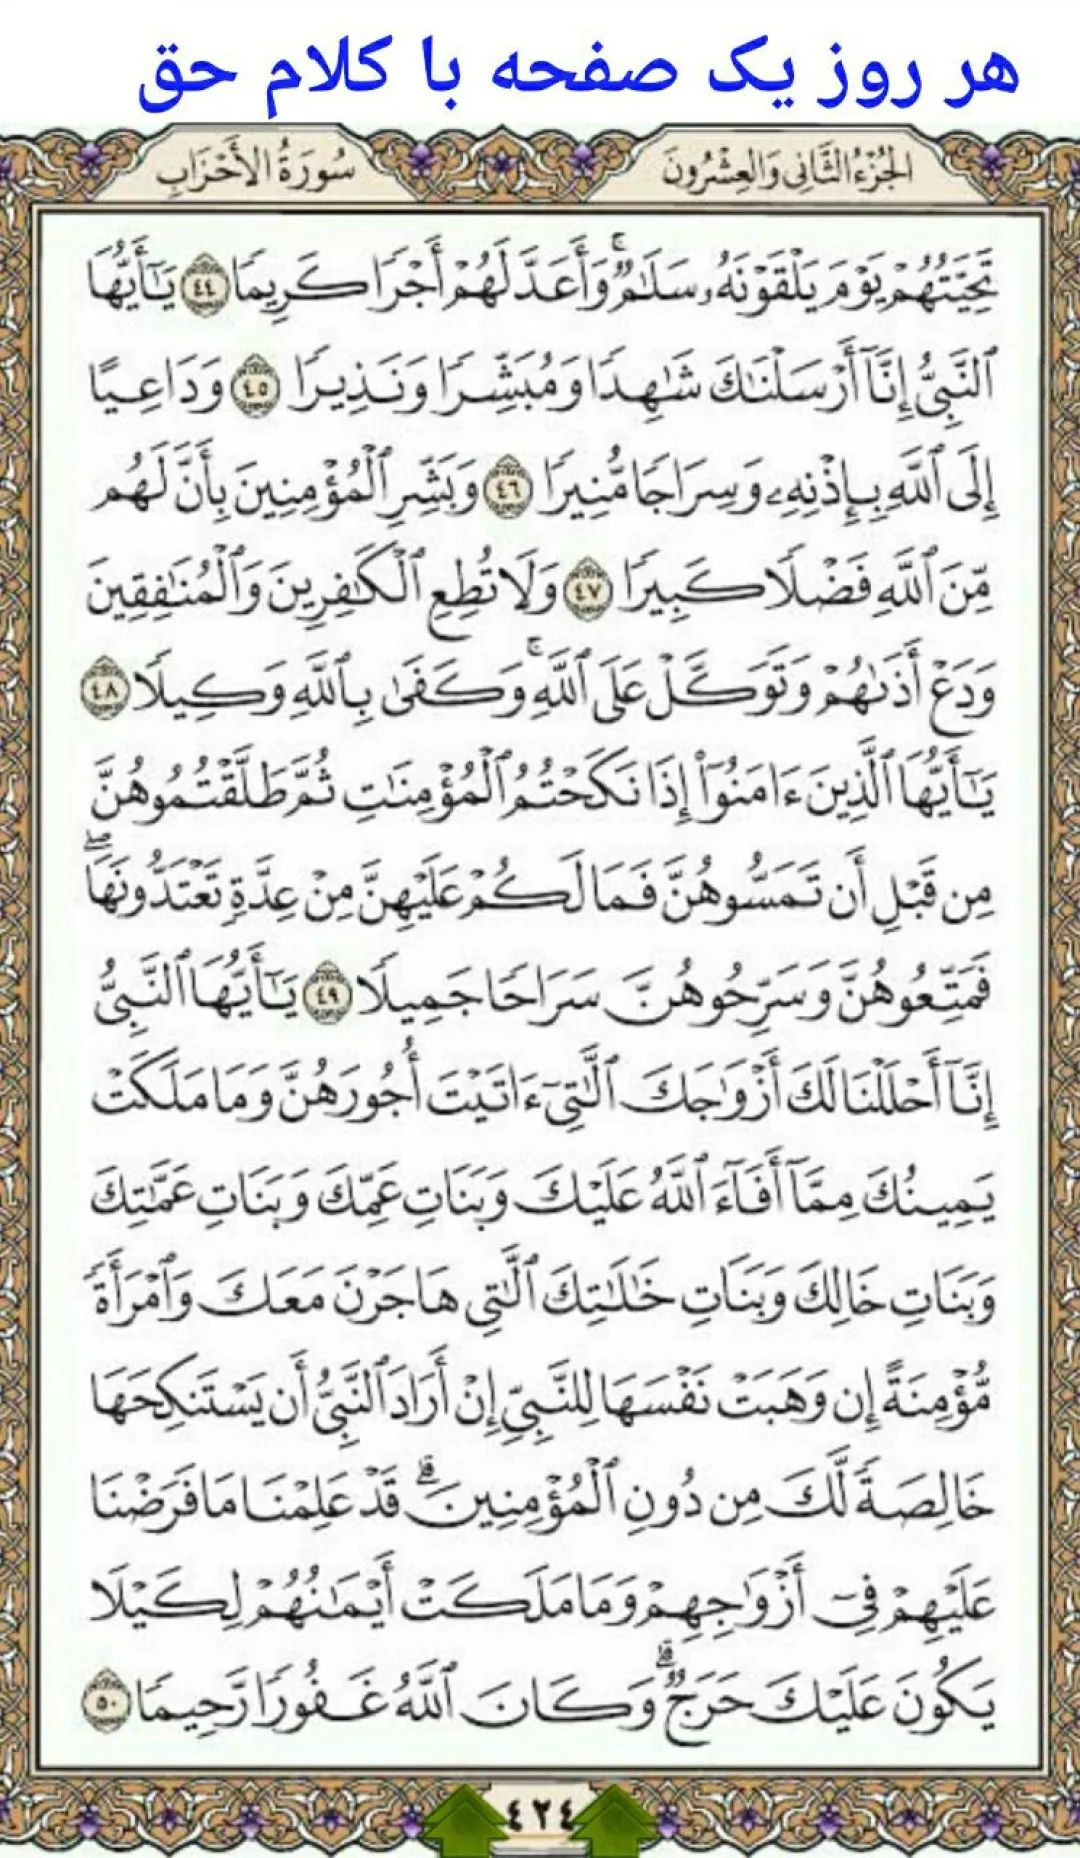 هر روز یک صفحه با کلام حق
الجُزْءُ الثَّانِي وَالعِشْرُونَ
سُورَةُ الأَحْزَابِ
تَحِيَّتُهُمْ يَوْمَ يَلْقَوْنَهُۥ سَلَٰمٌۚ وَأَعَدَّ لَهُمْ أَجْرًا كَرِيمًا ٤٤ يَٰٓأَيُّهَا
ٱلنَّبِىُّ إِنَّآ أَرْسَلْنَٰكَ شَٰهِدًا وَمُبَشِّرًا وَنَذِيرًا ٤٥ وَدَاعِيًا
إِلَى ٱللَّهِ بِإِذْنِهِۦ وَسِرَاجًا مُّنِيرًا ٤٦ وَبَشِّرِ ٱلْمُؤْمِنِينَ بِأَنَّ لَهُم
مِّنَ ٱللَّهِ فَضْلًا كَبِيرًا ٤٧ وَلَا تُطِعِ ٱلْكَٰفِرِينَ وَٱلْمُنَٰفِقِينَ
وَدَعْ أَذَىٰهُمْ وَتَوَكَّلْ عَلَى ٱللَّهِۚ وَكَفَىٰ بِٱللَّهِ وَكِيلًا ٤٨
يَٰٓأَيُّهَا ٱلَّذِينَ ءَامَنُوٓا۟ إِذَا نَكَحْتُمُ ٱلْمُؤْمِنَٰتِ ثُمَّ طَلَّقْتُمُوهُنَّ
مِن قَبْلِ أَن تَمَسُّوهُنَّ فَمَا لَكُمْ عَلَيْهِنَّ مِنْ عِدَّةٍ تَعْتَدُّونَهَاۖ
فَمَتِّعُوهُنَّ وَسَرِّحُوهُنَّ سَرَاحًا جَمِيلًا ٤٩ يَٰٓأَيُّهَا ٱلنَّبِىُّ
إِنَّآ أَحْلَلْنَا لَكَ أَزْوَٰجَكَ ٱلَّٰتِىٓ ءَاتَيْتَ أُجُورَهُنَّ وَمَا مَلَكَتْ
يَمِينُكَ مِمَّآ أَفَآءَ ٱللَّهُ عَلَيْكَ وَبَنَاتِ عَمِّكَ وَبَنَاتِ عَمَّٰتِكَ
وَبَنَاتِ خَالِكَ وَبَنَاتِ خَٰلَٰتِكَ ٱلَّٰتِى هَاجَرْنَ مَعَكَ وَٱمْرَأَةً
مُّؤْمِنَةً إِن وَهَبَتْ نَفْسَهَا لِلنَّبِىِّ إِنْ أَرَادَ ٱلنَّبِىُّ أَن يَسْتَنكِحَهَا
خَالِصَةً لَّكَ مِن دُونِ ٱلْمُؤْمِنِينَۗ قَدْ عَلِمْنَا مَا فَرَضْنَا
عَلَيْهِمْ فِىٓ أَزْوَٰجِهِمْ وَمَا مَلَكَتْ أَيْمَٰنُهُمْ لِكَيْلَا
يَكُونَ عَلَيْكَ حَرَجٌۗ وَكَانَ ٱللَّهُ غَفُورًا رَّحِيمًا ٥٠
٤٢٤